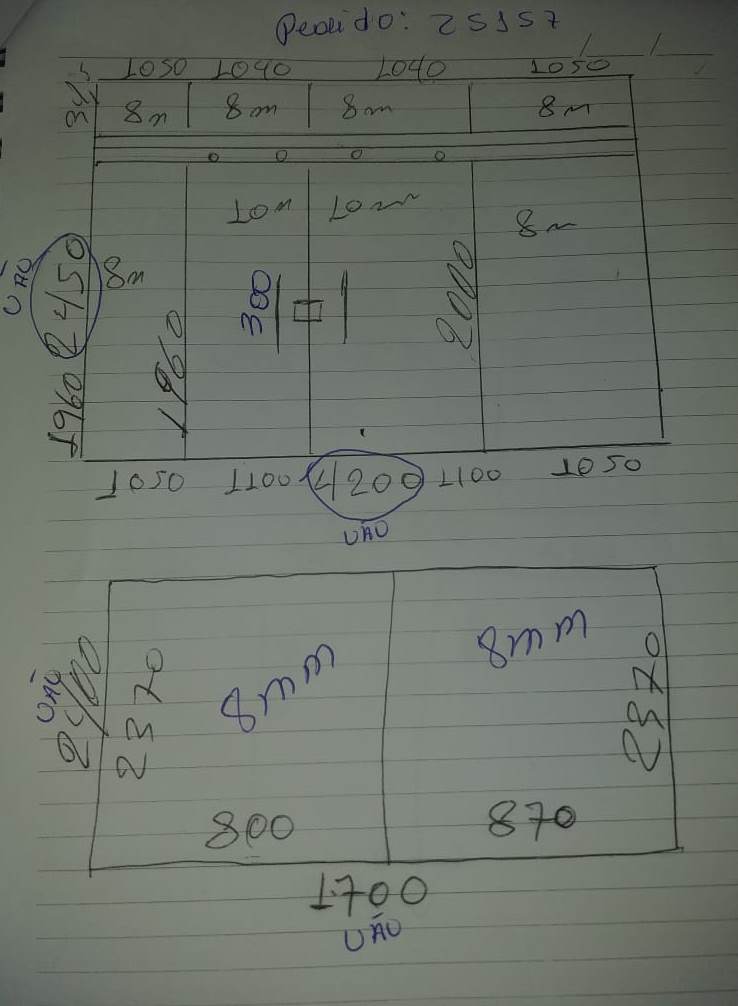 Pedido: 25157
1050 1040 1040 1050
8m 8m 8m 8m
10m 10mm
8m
8m
VÃO
2450
300
2000
1960
1960
1050 1100 4200 1100 1050
VÃO
8mm
8mm
VÃO
2400
2370
2370
800 870
1700
VÃO